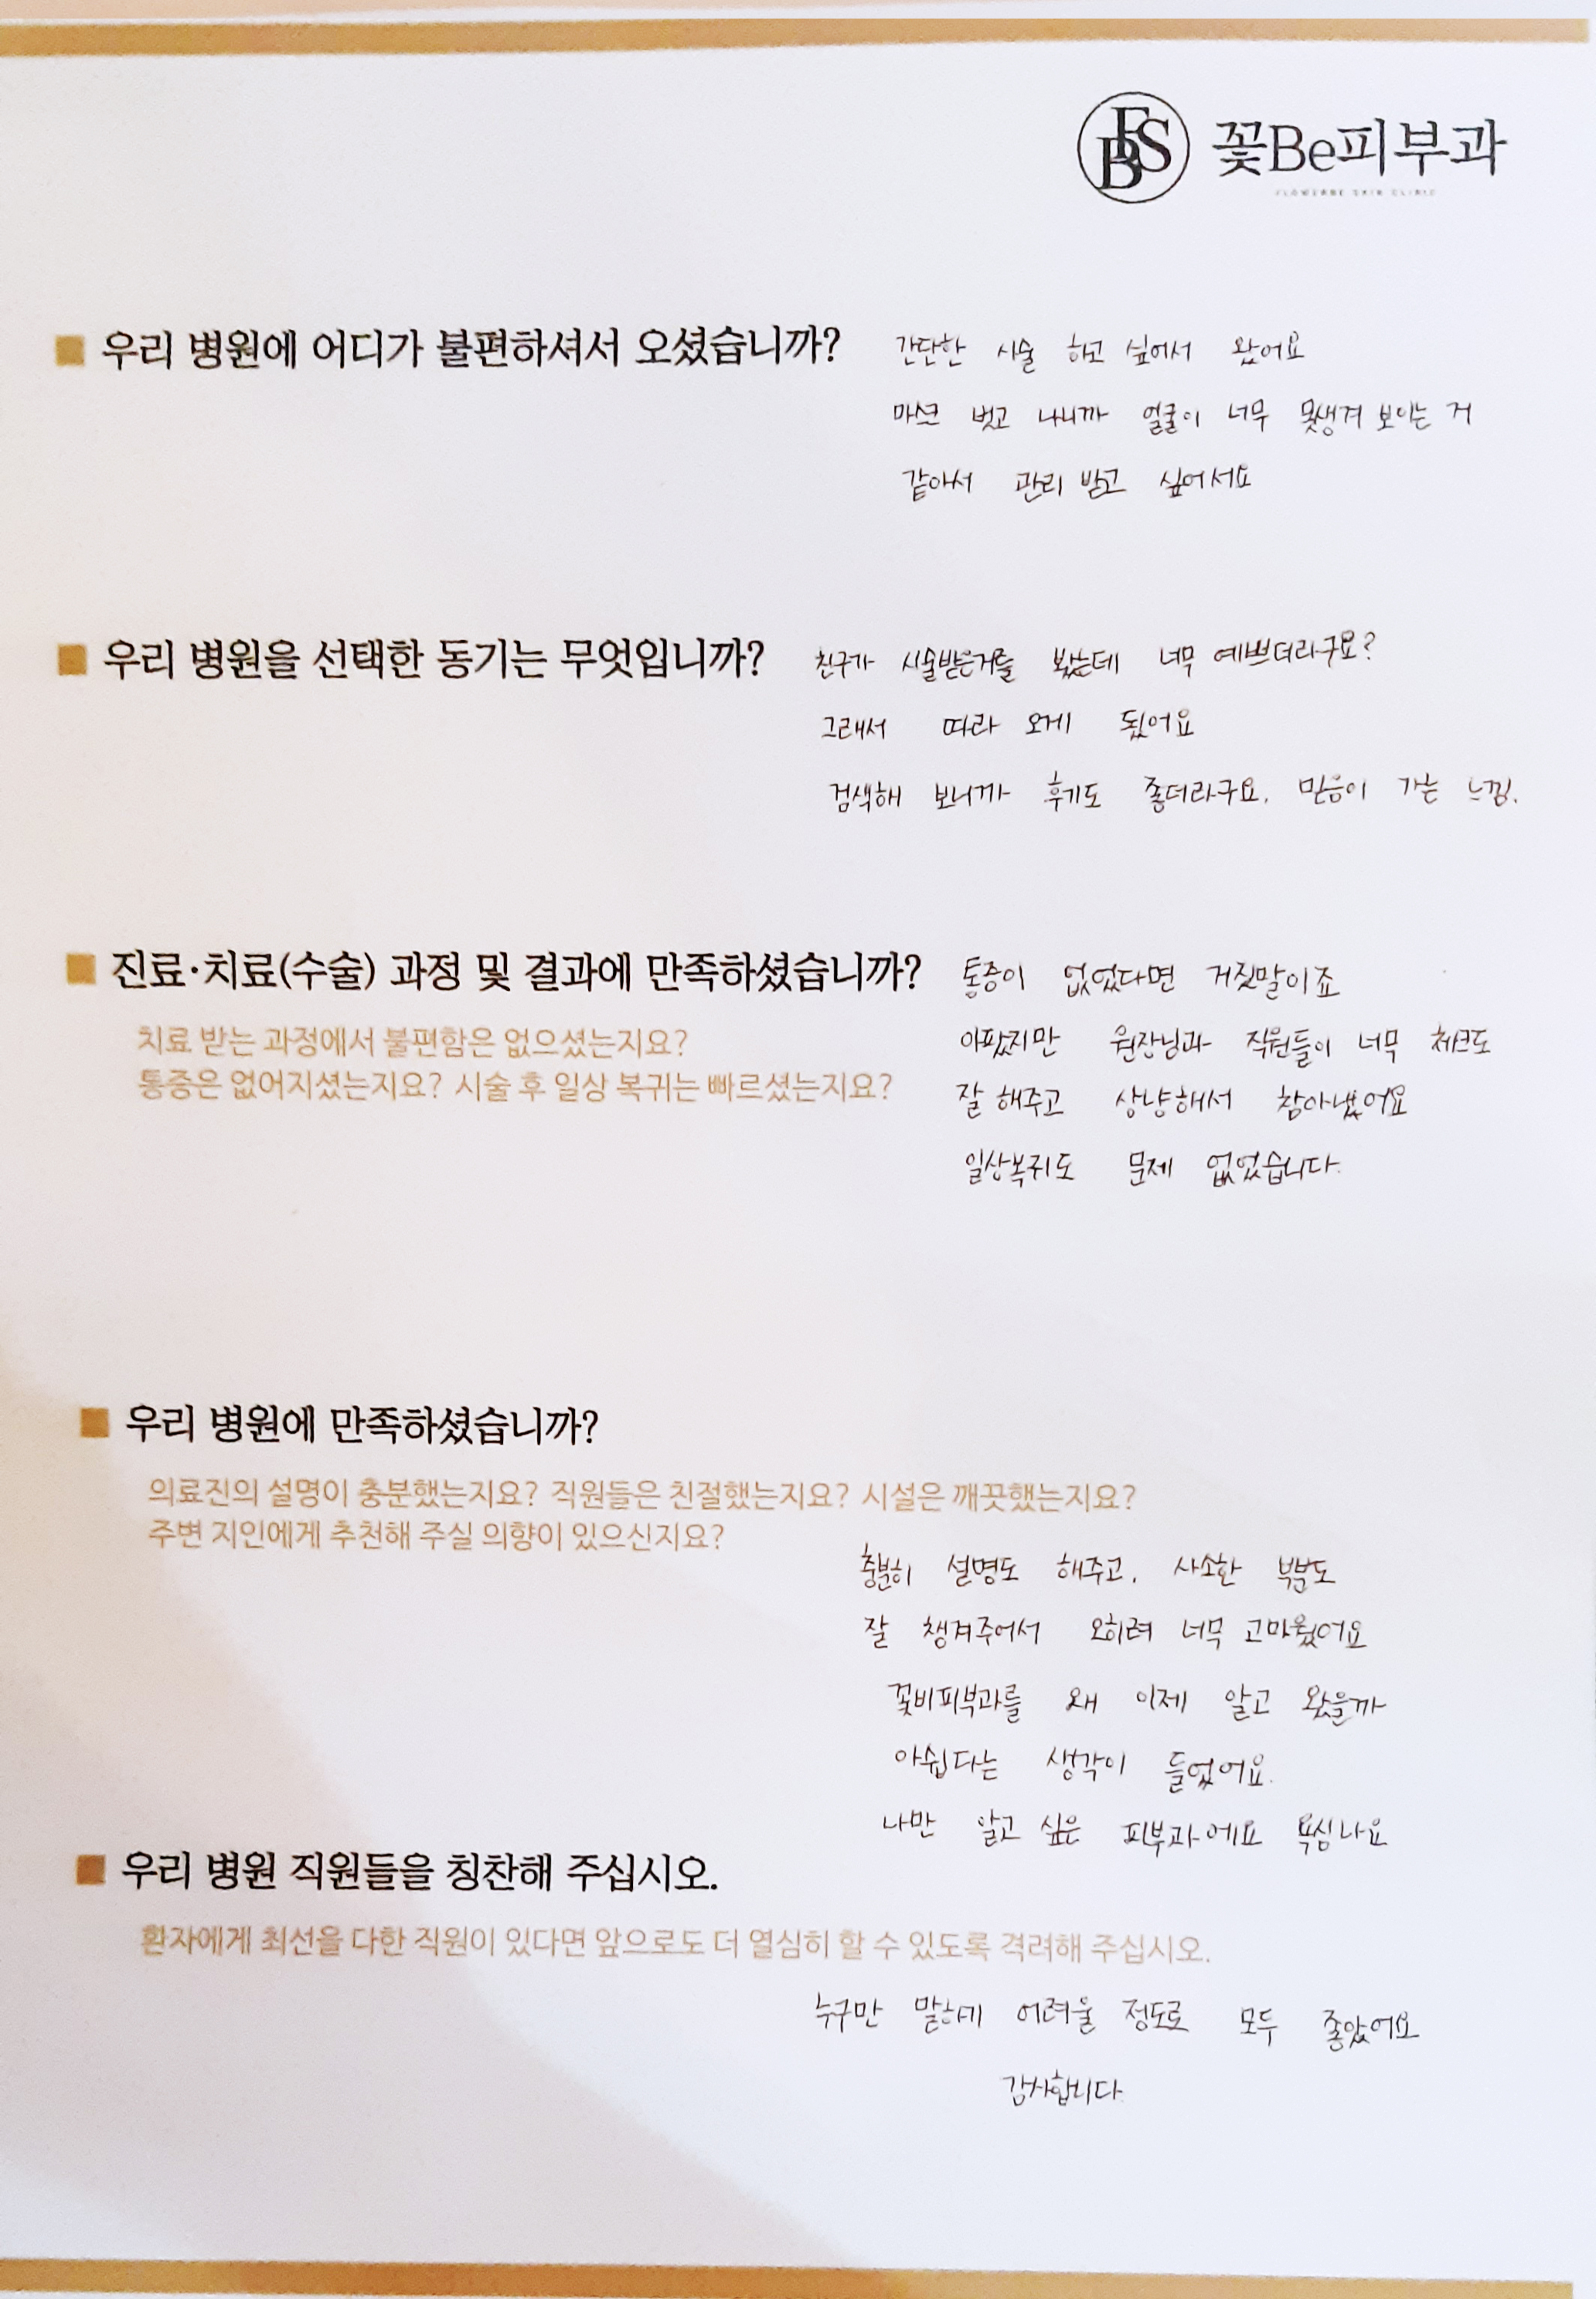 FSB 꽃Be피부과
FLOWERBE SKIN CLINIC
우리 병원에 어디가 불편하셔서 오셨습니까?
간단한 시술 하고 싶어서 왔어요
마스크 벗고 나니까 얼굴이 너무 못생겨 보이는 거
같아서 관리 받고 싶어서요
우리 병원을 선택한 동기는 무엇입니까?
친구가 시술받은거를 봤는데 너무 예쁘더라구요?
그래서 따라 오게 됬어요
검색해 보니까 후기도 좋더라구요. 믿음이 가는 느낌.
진료·치료(수술) 과정 및 결과에 만족하셨습니까?
치료 받는 과정에서 불편함은 없으셨는지요?
통증은 없어지셨는지요? 시술 후 일상 복귀는 빠르셨는지요?
통증이 없었다면 거짓말이죠
아팠지만 원장님과 직원들이 너무 체크도
잘 해주고 상냥해서 참아냈어요
일상복귀도 문제 없었습니다.
우리 병원에 만족하셨습니까?
의료진의 설명이 충분했는지요? 직원들은 친절했는지요? 시설은 깨끗했는지요?
주변 지인에게 추천해 주실 의향이 있으신지요?
충분히 설명도 해주고, 사소한 부분도
잘 챙겨주어서 오히려 너무 고마웠어요
꽃비피부과를 왜 이제 알고 왔을까
아쉽다는 생각이 들었어요.
나만 알고 싶은 피부과에요 욕심나요
우리 병원 직원들을 칭찬해 주십시오.
환자에게 최선을 다한 직원이 있다면 앞으로도 더 열심히 할 수 있도록 격려해 주십시오.
누구만 말하게 어려울 정도로 모두 좋았어요
감사합니다.